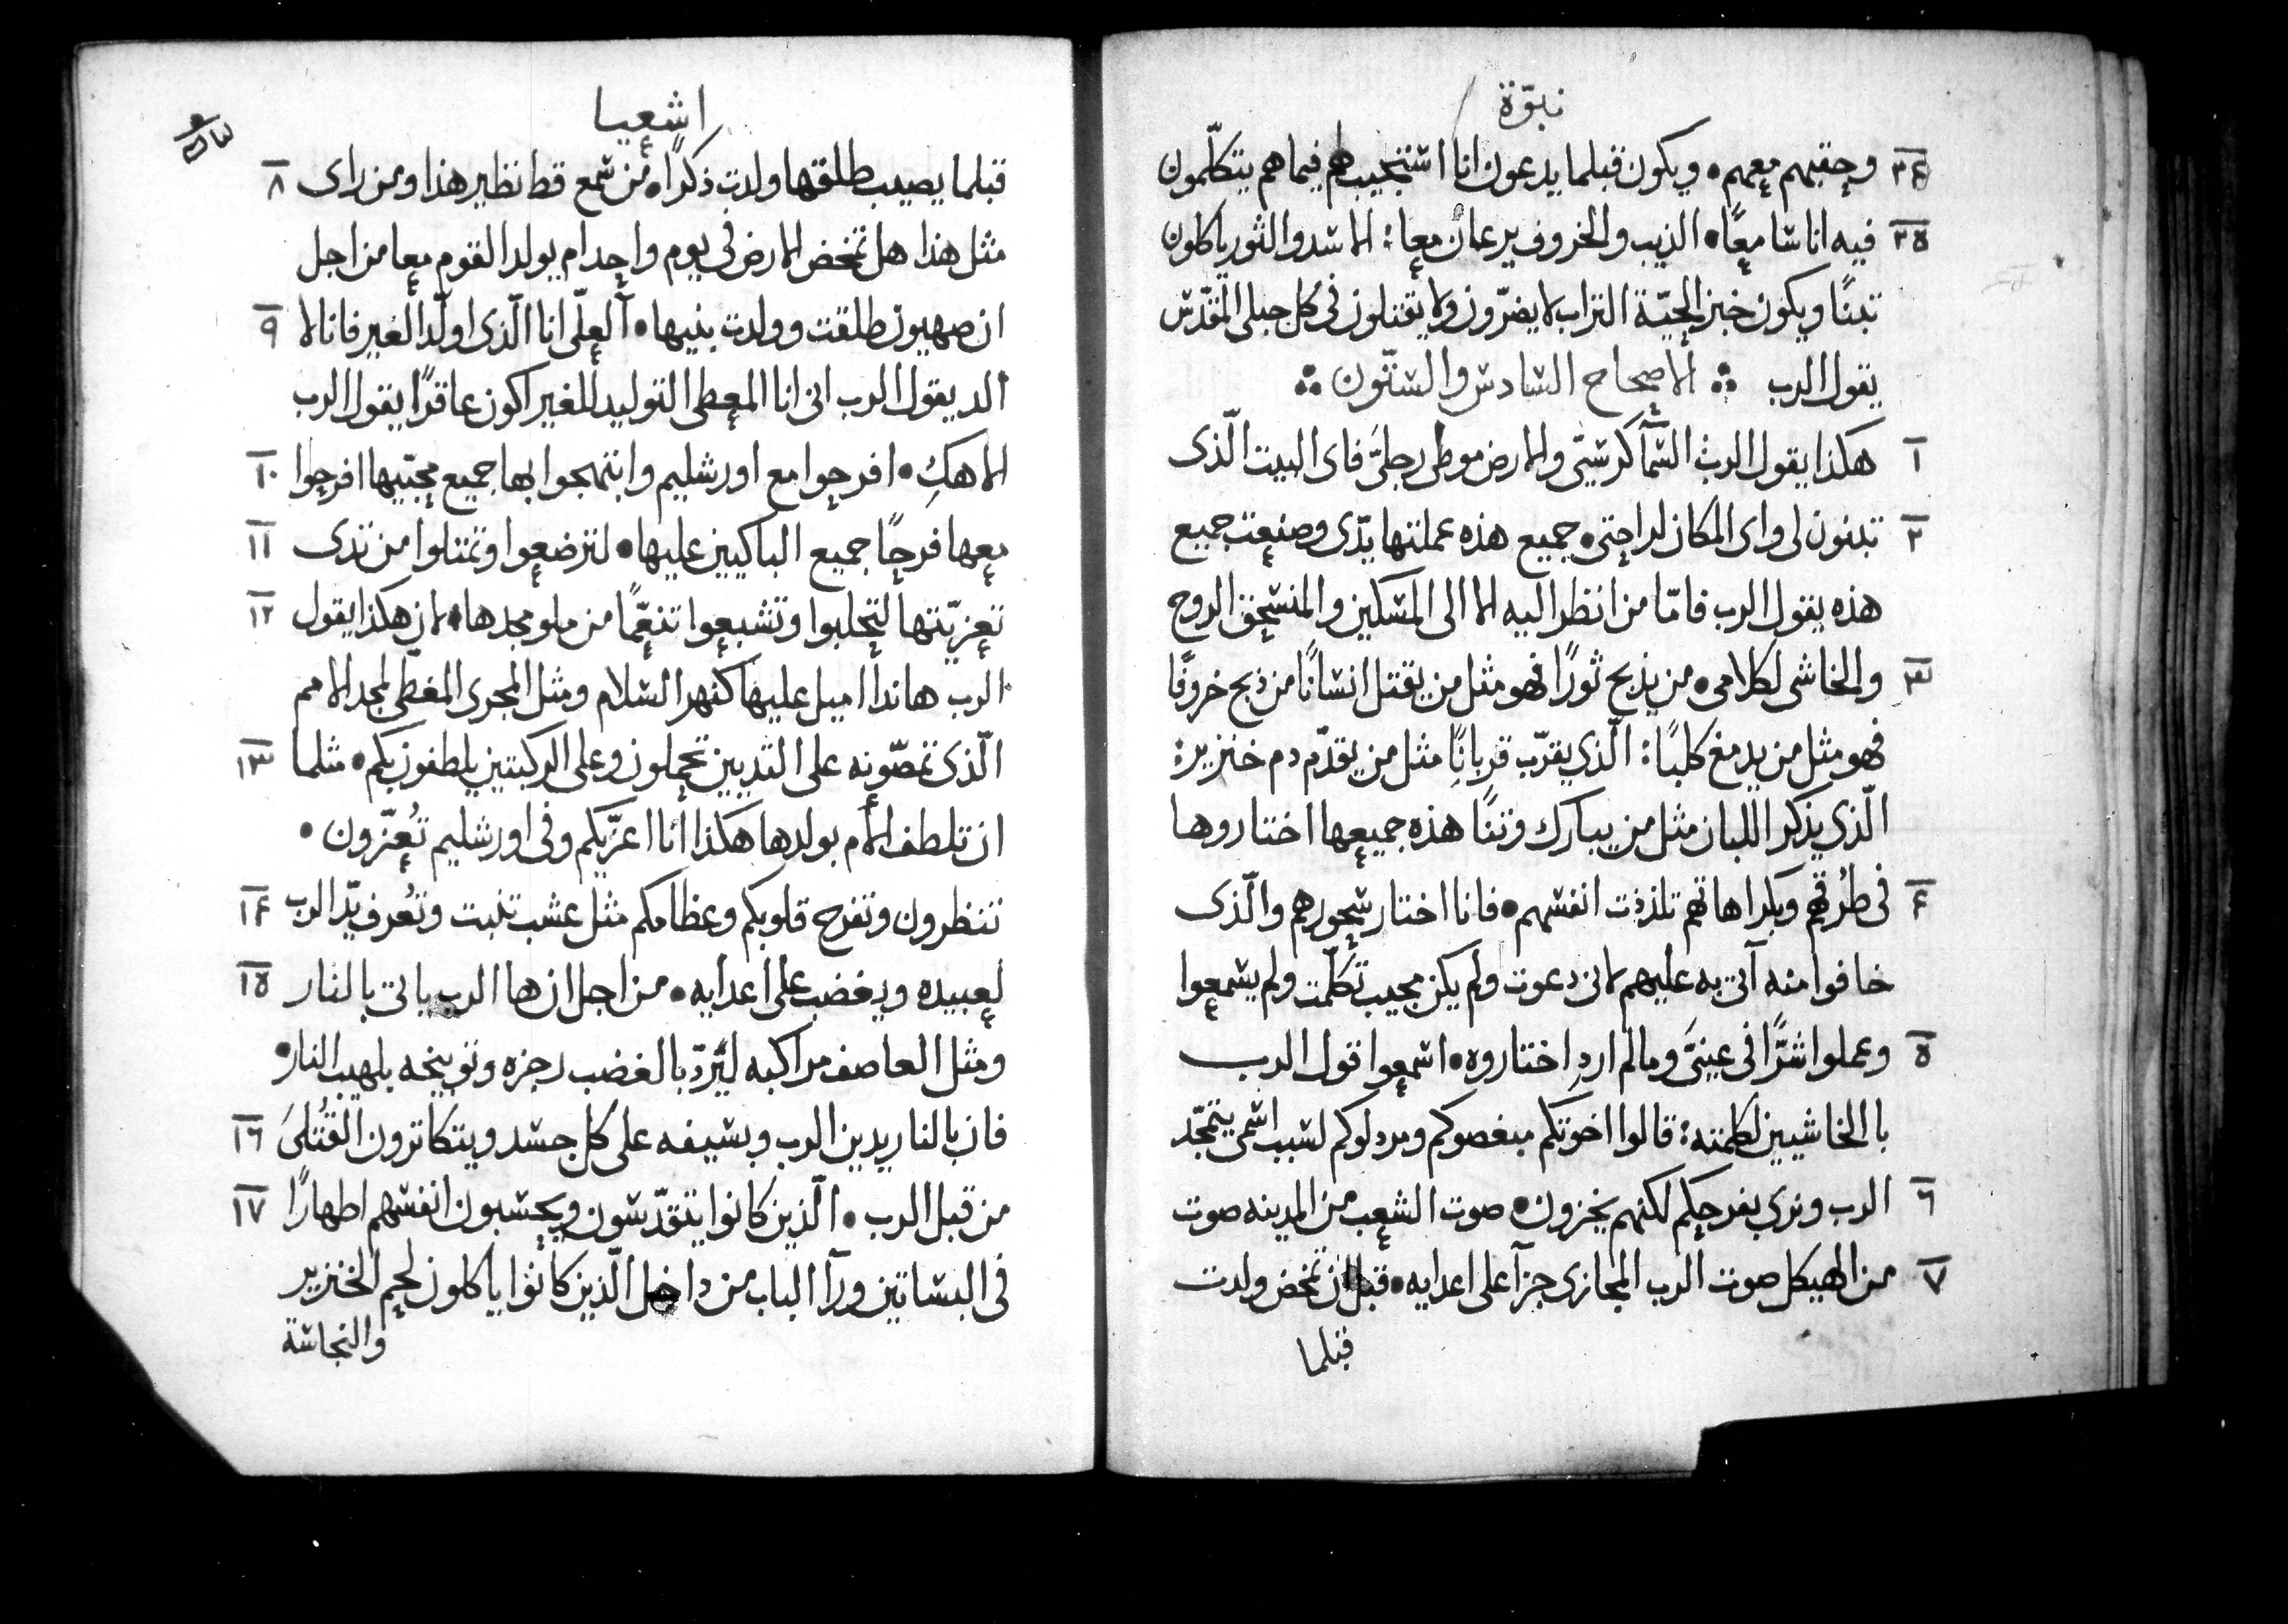 نبوّة
٢٤ وحقبهم معهم • ويكون قبلما يدعون انا استجيب لهم فيما هم يتكلّمون
٢٥ فيه انا سامعًا • الذيب والخروف يرعان معا: الاسد والثور ياكلون
تبنًا ويكون خبز الحيّة التراب لا يضرّون ولا يقتلون في كل جبلي المقدّس
يقول الرب ⁘ الاصحاح السادس والستّون ⁘
١ هكذا يقول الرب السمآ كرسيّ والارض موطى رجليّ فاى البيت الّذى
٢ تبنون لى واى المكان لراحتى • جميع هذه عملتها يدّى وصنعت جميع
هذه يقول الرب فامّا من انظر اليه الا الى المسكين والمنسحق الروح
٣ والخاشى لكلامى • من يذبح ثورًا فهو مثل من يقتل انسانًا من ذبح خروفًا
فهو مثل من يدمغ كلبًا: الّذي يقرّب قربانًا مثل من يقدّم دم خنزير:
الّذي يذكر اللبان مثل من يبارك وثنًا هذه جميعها اختاروها
٤ فى طُرقهم وبكراهاتهم تلذذت انفسهم • فانا اختار سحورهم والّذى
خافوا منه آتى به عليهم لانى دعوت ولم يكن مجيب تكلّمت ولم يسمعوا
٥ وعملوا شرًّا فى عينىّ وما لم ارد اختاروه • اسمعوا قول الرب
يا الخاشيين لكلمته: قالوا اخوتكم مبغضوكم ومردلوكم لسبب اسمى يتمجّد
٦ الرب ونرى بفرحكم لكنهم يخزون • صوت الشعب من المدينه صوت
٧ من الهيكل صوت الرب المجازى جزآ على اعدايه • قبل ان تمخض ولدت
قبلما
اشعيا
قبلما يصيب طلقها ولدت ذكرًا • من سمع قط نظير هذا ومن راى ٨
مثل هذا هل تمخض الارض فى يوم واحد ام يولد القوم معا من اجل
ان صهيون طلقت وولدت بنيها • آلعلّى انا الّذى اولّد الغير فانا لا ٩
الد يقول الرب انى انا المعطى التوليد للغير اكون عاقرًا يقول الرب
الاهكِ • افرحوا مع اورشليم وابتهجوا بها جميع محبّيها افرحوا ١٠
معها فرحًا جميع الباكيين عليها • لترضعوا وتمتلوا من ثدى ١١
تعزيّتها لتحلبوا وتشبعوا تنعّمًا من ملو مجدها • لان هكذا يقول ١٢
الرب هانذا اميل عليها كنهر السلام ومثل المجرى المغطّى لمجد الامم
الّذى تمصّونه على الثديين تحملون وعلى الركبتين يلطفون بكم • مثلما ١٣
ان تلطف الأم بولدها هكذا انا اعزّيكم وفى اورشليم تُعزّون •
تنظرون وتفرح قلوبكم وعظامكم مثل عشب تنبت وتُعرف يدّ الرب ١٤
لعبيده ويغضب على اعدايه • من اجل ان ها الرب ياتى بالنار ١٥
ومثل العاصف مراكبه ليردّ بالغضب رجزه وتوبيخه بلهيب النار •
فان بالنار يدين الرب وبسيفه على كل جسد ويتكاثرون القُتلىَ ١٦
من قبل الرب • الّذين كانوا يتقدّسون ويحسبون انفسهم اطهارًا ١٧
فى البساتين ورآ الباب من داخل الّذين كانوا ياكلون لحم الخنزير
والنجاسة